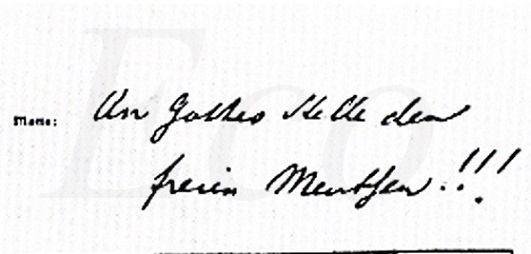 Motto:
An Gottes Stelle den
freien Menschen!!!
Eco